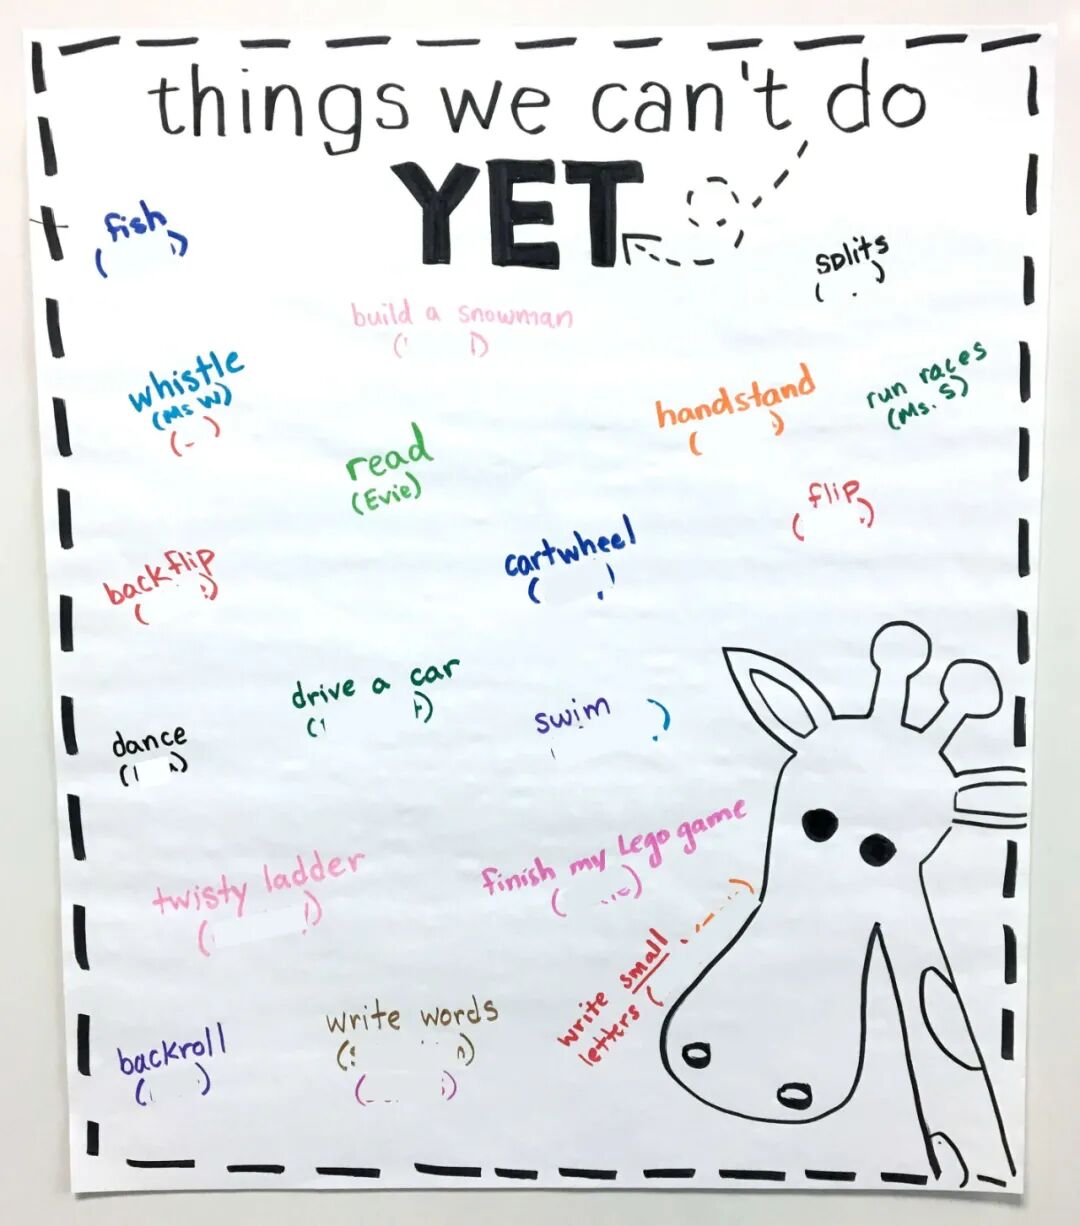 things we can't do
YET
fish
( )
splits
( )
build a snowman
( )
whistle
(Ms W)
( )
handstand
( )
run races
(Ms. S)
read
(Evie)
flip
( )
backflip
( )
cartwheel
( )
drive a car
( )
swim
)
dance
( )
twisty ladder
( )
finish my Lego game
( )
write small
letters ( )
backroll
( )
write words
( )
( )